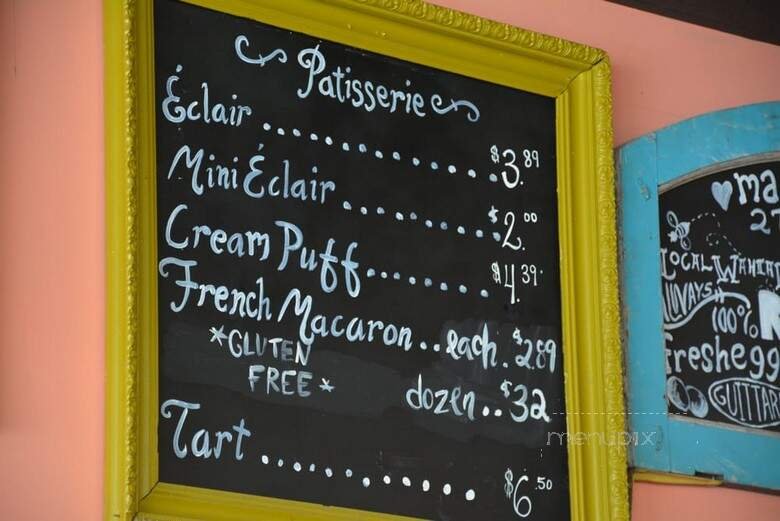 Patisserie
Éclair .............. $3.89
Mini Éclair ........... $2.00
Cream Puff ........ $4.39
French Macaron .. each. $2.89
*GLUTEN
FREE*
dozen .. $32
Tart ............ $6.50
ma
LOCAL
100%
Fresh egg
GUITTAR
menupix